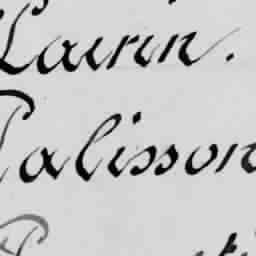 Lairin.
Palisson